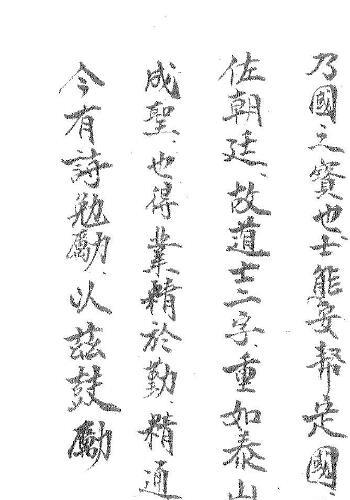 乃國之寶也、士能安幇定國、
佐朝廷、故道士二字、重如泰山
成聖、也得業精於勤、精通
今有詩勉勵、以茲鼓勵